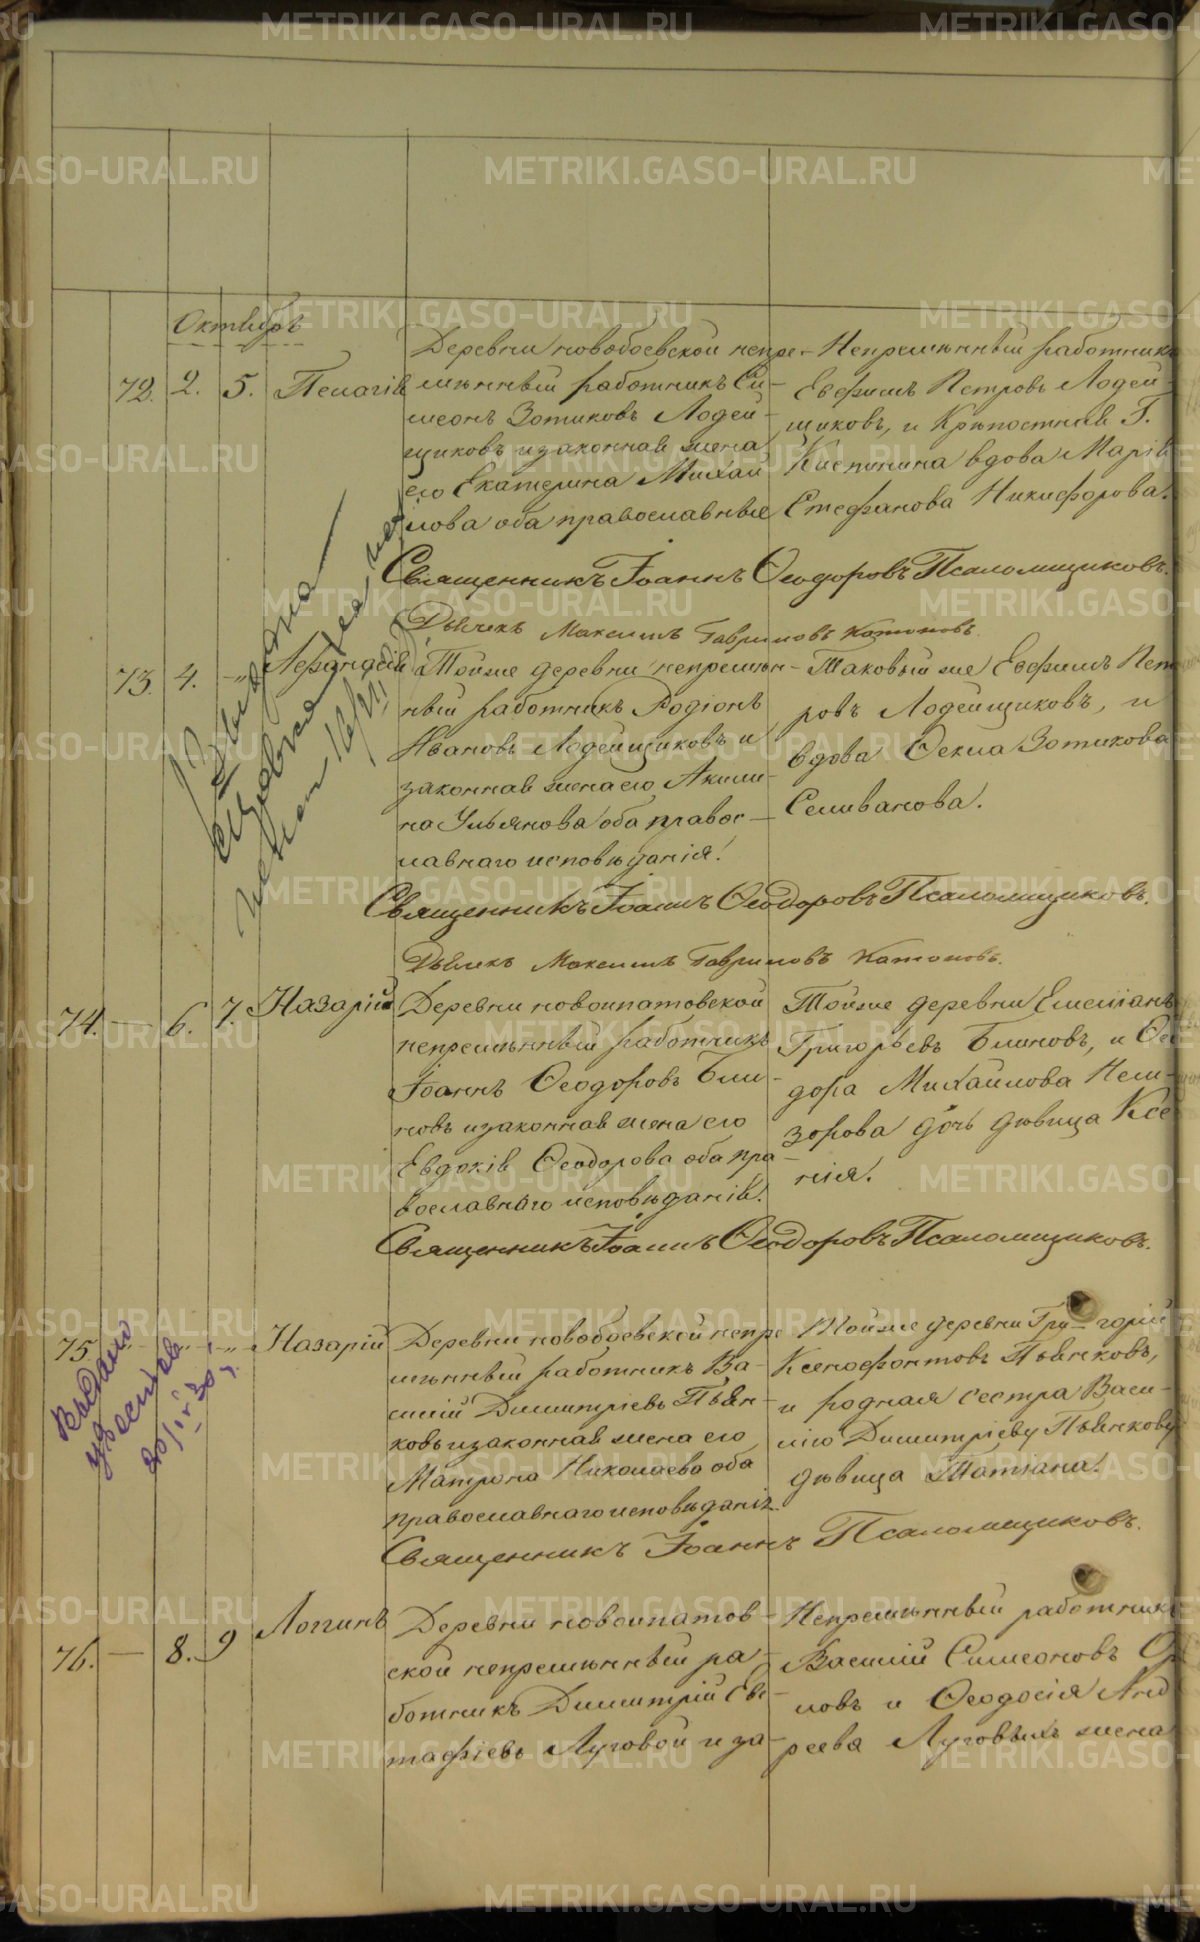 Октябрь
72. 2. 5. Пелагія
Деревни новобоевской непре-
мѣнный работникъ Си-
меонъ Зотиковъ Лодей-
щиковъ и законная жена
его Екатерина Михай
лова оба православные
Непремѣнный работникъ
Евфимъ Петровъ Лодей-
щиковъ, и Крѣпостная Г.
вдова Марія
Стефанова Никифорова.
Священникъ Іоаннъ Ѳеодоровъ Псаломщиковъ.
Дьячекъ Максимъ Гавриловъ
73. 4. -„-
Тойже деревни непремѣн-
ный работникъ Родіонъ
Ивановъ Лодейщиковъ и
законная жена его Акили-
на Ульянова оба правос-
лавнаго исповѣданія.
Таковый же Евфимъ Пет
ровъ Лодейщиковъ, и
вдова Ѳекла Зотикова
Селиванова.
Священникъ Іоаннъ Ѳеодоровъ Псаломщиковъ.
Дьячекъ Максимъ Гавриловъ
74. — 6. 7. Назарій
Деревни новоипатовской
непремѣнный работникъ
Іоаннъ Ѳеодоровъ Бли-
новъ и законная жена его
Евдокія Ѳеодорова оба пра-
вославнаго исповѣданія.
Тойже деревни Емеліанъ
Григорьевъ Блиновъ, и Ѳео
дора Михайлова Нем-
зорова дочь дѣвица Ксе
нія.
Священникъ Іоаннъ Ѳеодоровъ Псаломщиковъ.
75. -„- -„- -„- Назарій
Деревни новобоевской непре
мѣнный работникъ Ва-
силій Димитріевъ Пьян-
ковъ и законная жена его
Матрона Николаева оба
православнаго исповѣданія
Тойже деревни Гри-горій
Ксенофонтовъ Пьянковъ,
и родная сестра Васи-
лію Димитріеву Пьянкову
дѣвица Татіана.
Священникъ Іоаннъ Псаломщиковъ.
76. — 8. 9 Логинъ
Деревни новоипатов-
ской непремѣнный ра-
ботникъ Димитрій Евс-
тафіевъ Луговой и за-
Непремѣнный работникъ
Василій Симеоновъ Ор
ловъ и Ѳеодосія Анд
реева Луговыхъ жена
Выдана
Выдано
METRIKI.GASO-URAL.RU